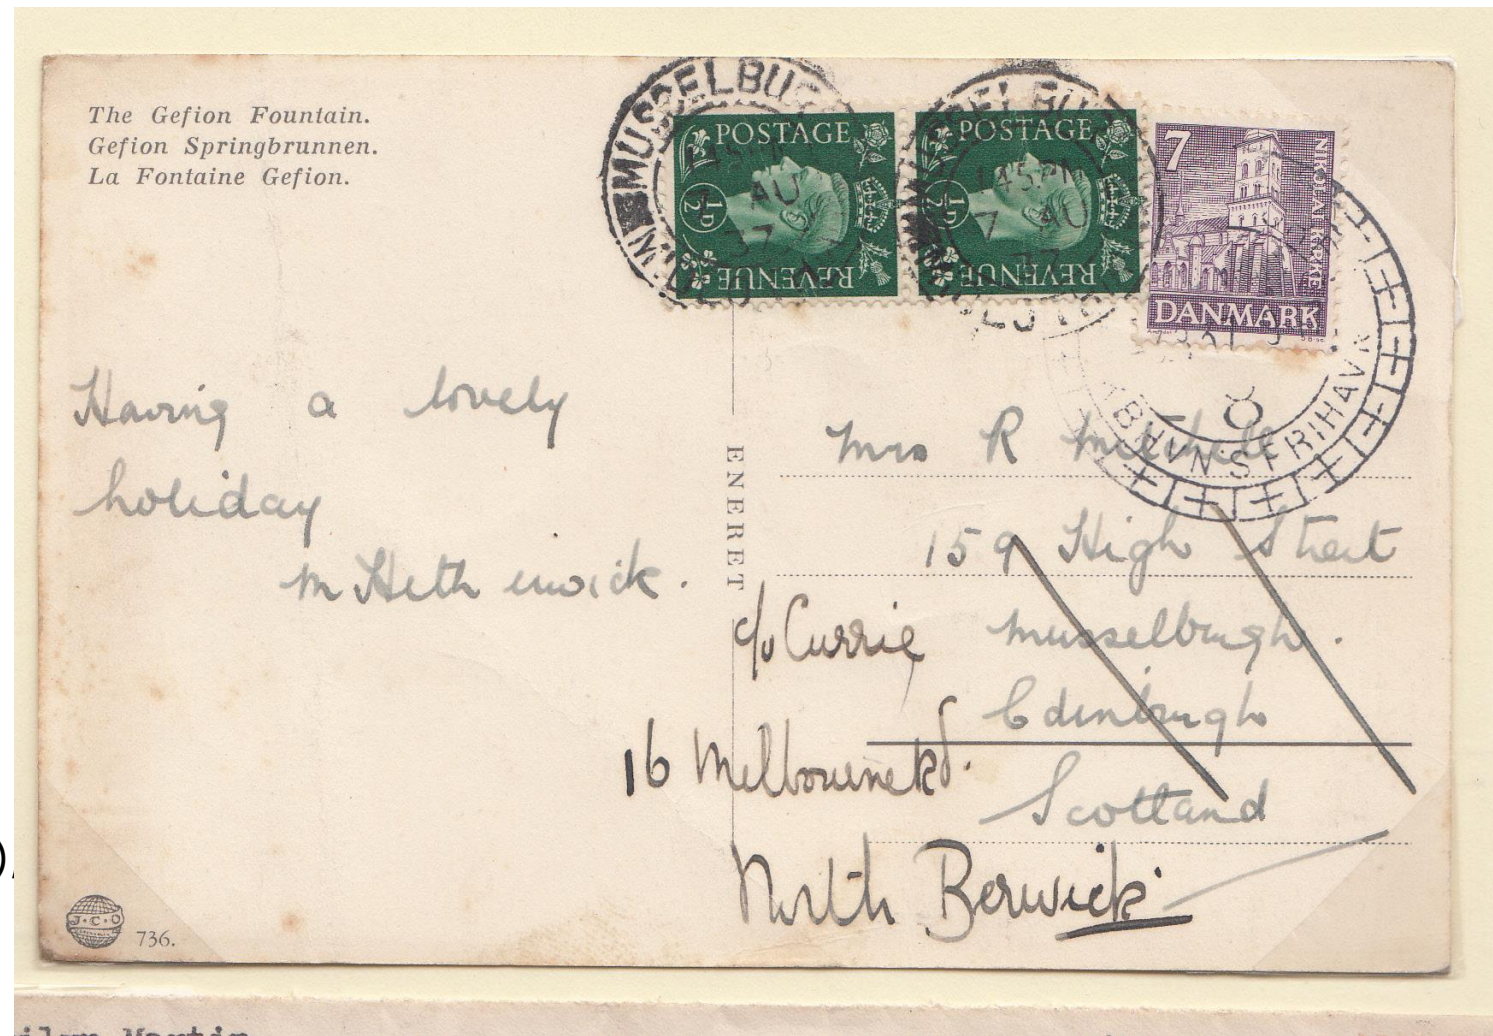 The Gefion Fountain.
Gefion Springbrunnen.
La Fontaine Gefion.
MUSSELBURGH
1 45 PM
7 AU
37
MIDLOTHIAN
POSTAGE
½D
REVENUE
MUSSELBURGH
1 45 PM
7 AU
37
MIDLOTHIAN
POSTAGE
½D
REVENUE
7
NIKOLAI KIRKE
DANMARK
KBHVN'S FRIHAVN
Having a lovely
holiday
M Hetherwick.
ENERET
Mrs R Mitchell
159 High Street
Musselburgh.
Edinburgh
Scotland
c/o Currie
16 Melbourne Rd.
North Berwick
J.C.O
736.